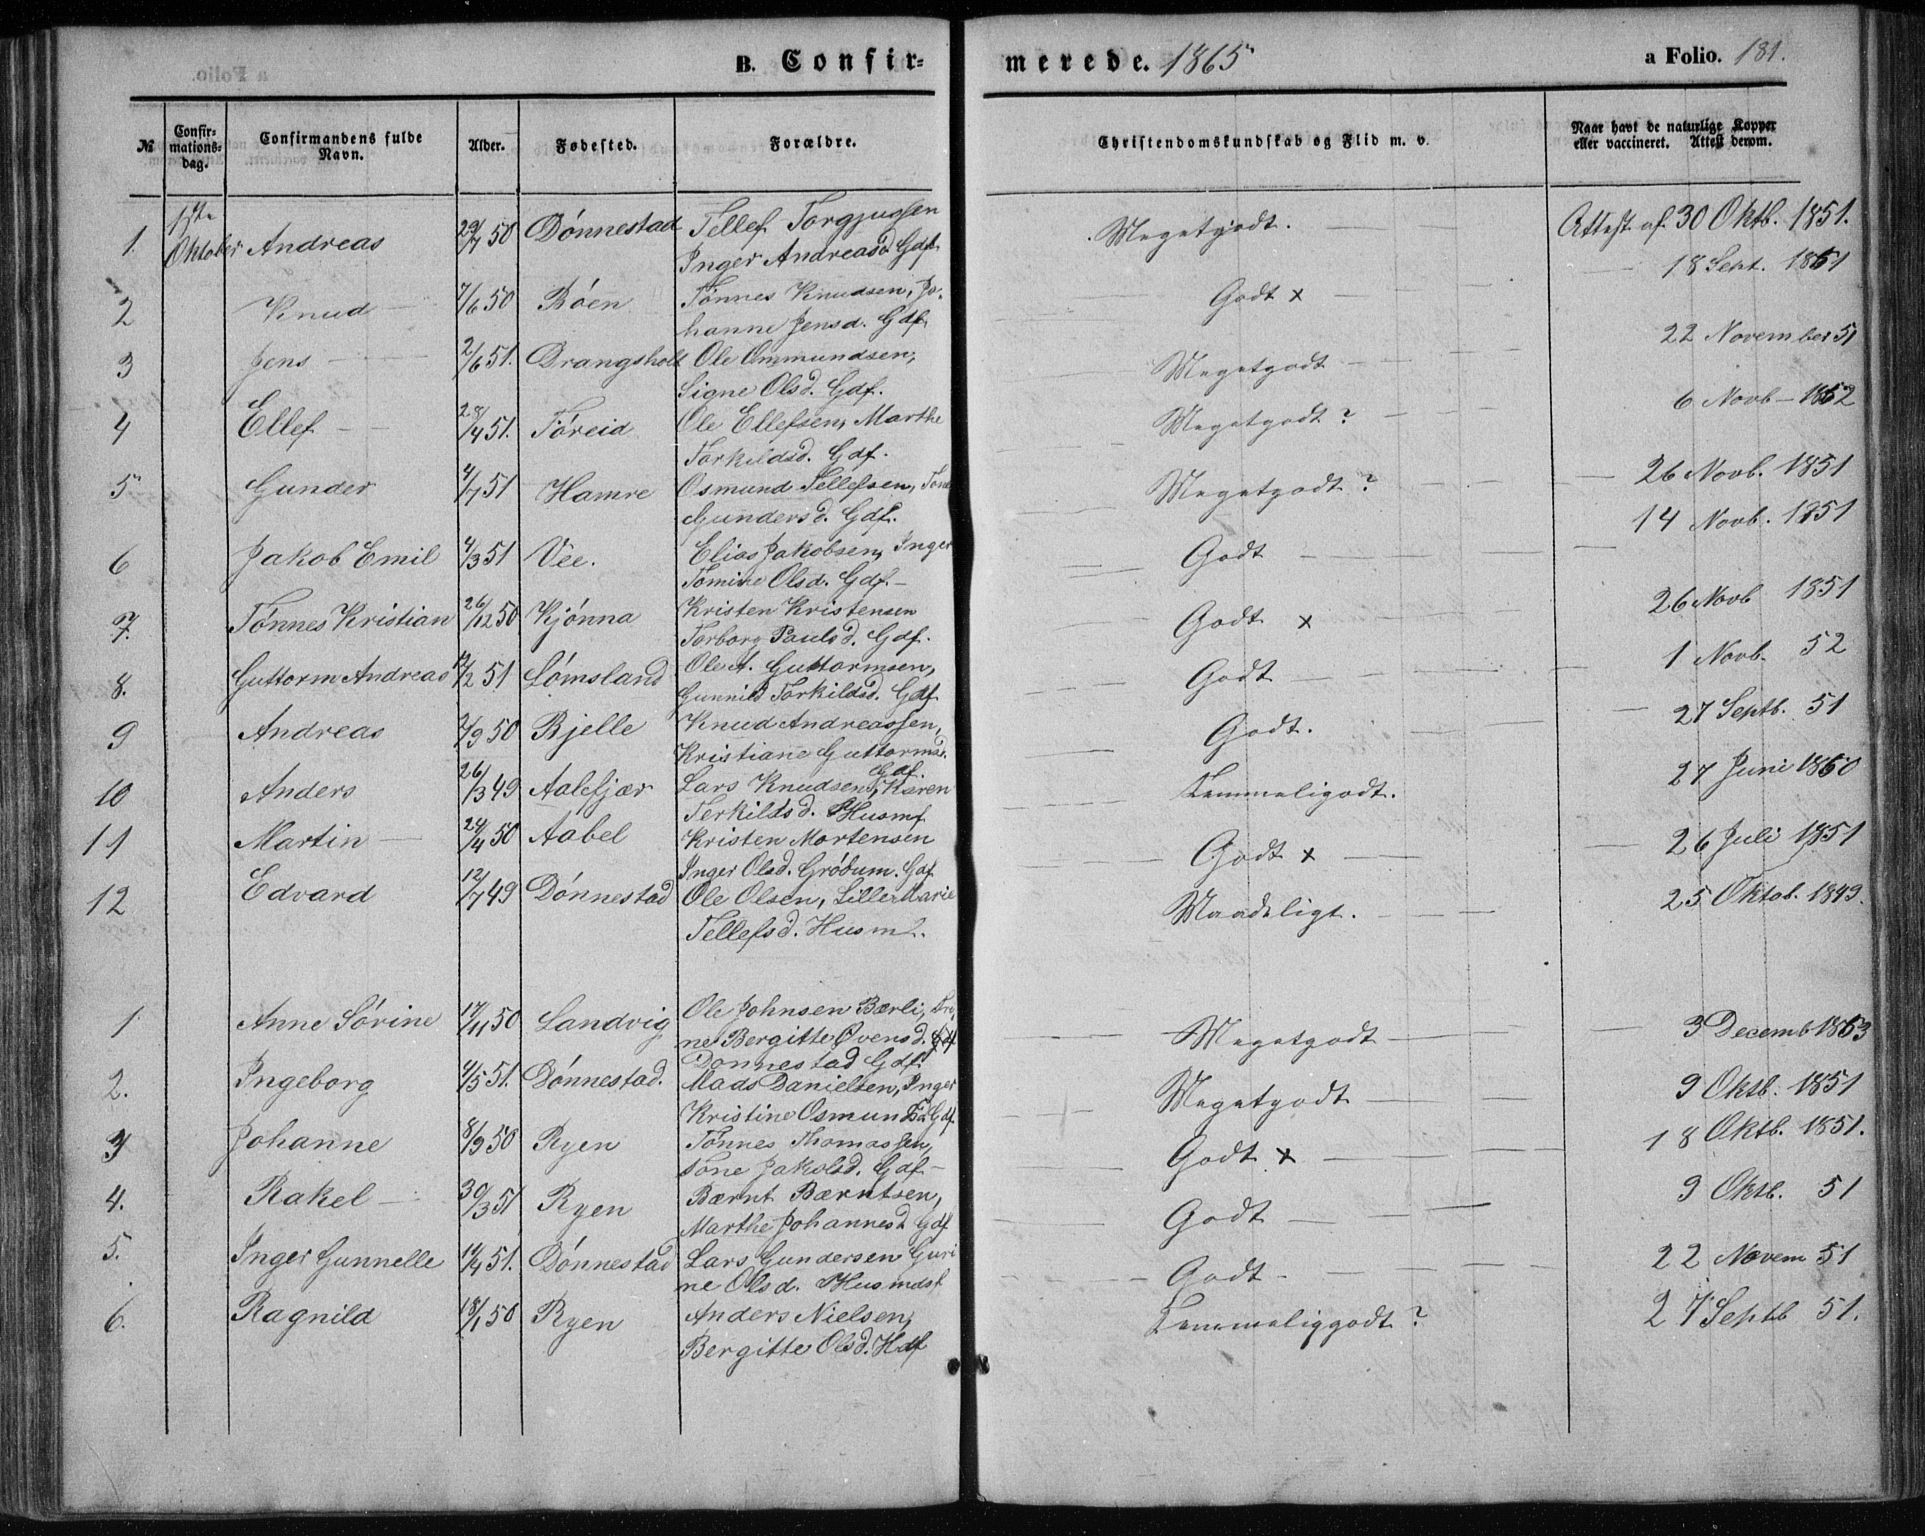 B. Confir= merede. 1865 a Folio. 181.
№ Confir-mations-dag. Confirmandens fulde Navn. Alder. Fødested. Forældre. Christendomskundskab og Flid m. v. Naar havt de naturlige Kopper eller vaccineret. Attest derom.
1. 1ste Oktober Andreas 29/7 50 Dønnestad Tellef Torgjugsen Megetgodt. Attest af 30 Oktb. 1851.
Inger Andreasd. Gdf.
2 Knud 7/6 50 Røen Tønnes Knudsen, Jo- Godt x 18 Sept. 1851
hanne Jensd. Gdf.
3 Jens 2/6 51. Drangsholt Ole Ommundsen, Megetgodt 22 November 51
Signe Olsd. Gdf.
4 Ellef 28/4 51. Føreid Ole Ellefsen, Marthe Megetgodt? 6 Novb 1852
Torkildsd. Gdf.
5 Gunder 4/7 51 Hamre Osmund Tellefsen, Tone Megetgodt? 26 Novb. 1851
Gundersd. Gdf.
6 Jakob Emil 4/3 51 Vee. Elias Jakobsen, Inger Godt 14 Novb. 1851
Tomine Olsd. Gdf.
7. Tønnes Kristian 26/12 50 Kjønna Kristen Kristensen Godt x 26 Novb 1851
Torborg Paulsd. Gdf.
8. Guttorm Andreas /2 51 Lømsland Ole A. Guttormsen, Godt 1 Novb. 52
Gunnild Torkildsd. Gdf
9 Andreas /9 50 Bjelle Knud Andreassen, Godt. 27 Septb. 51
Kristiane Guttormsd. Gdf.
10 Anders 26/3 49 Aalefjær Lars Knudsen, Karen Temmeligodt. 27 Juni 1860
Terkildsd. Husmf
11 Martin 24/4 50 Aabel Kristen Mortensen Godt x 26 Juli 1851
Inger Olsd. Grødum. Gdf.
12 Edvard 12/7 49 Dønnestad Ole Olsen, Lille Marie Maadeligt. 25 Oktob. 1849.
Tellefsd. Husmf.
1 Anne Sørine 17/11 50 Landvig Ole Johnsen Bærli, Megetgodt 3 Decemb 1863
ne Bergitte Øvensd.
Dønnestad Gdf.
2. Ingeborg 4/5 51. Dønnestad. Mads Danielsen, Inger Megetgodt 9 Oktb. 1851
Kristine Osmundsd. Gdf.
3 Johanne 8/9 50 Ryen Tønnes Thomassen, Godt x 18 Oktb. 1851.
Tone Jakobsd. Gdf
4. Rakel 30/3 51 Ryen Bærnt Bærntsen, Godt 9 Oktb. 51
Marthe Johannesd. Gdf
5. Inger Gunnelle 14/4 51. Dønnestad Lars Gundersen Guri Godt 22 Novem 51
ne Olsd. Husmdsf
6. Ragnild 18/1 50 Ryen Anders Nielsen, Temmeliggodt? 27 Septb 51.
Bergitte Olsd. Hdf